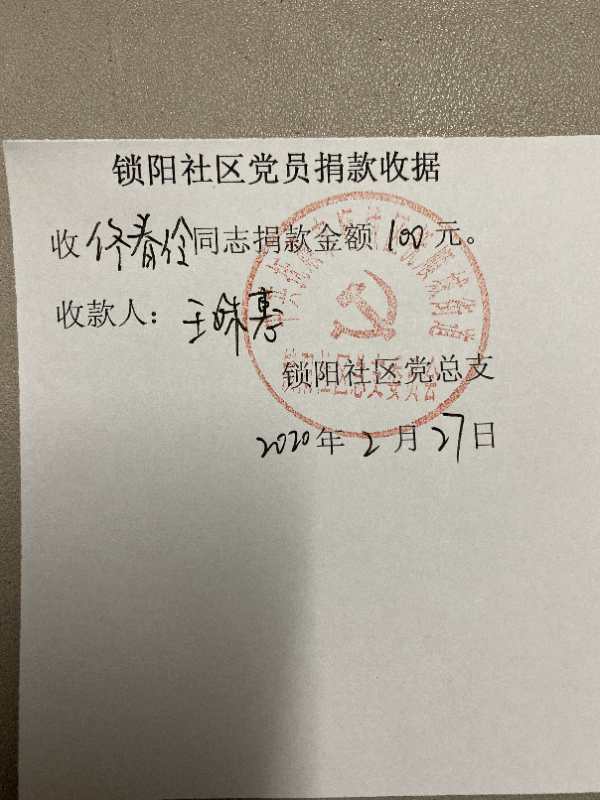 锁阳社区党员捐款收据
收佟春伶同志捐款金额100元。
收款人：王姝惠
锁阳社区党总支
2020年2月27日